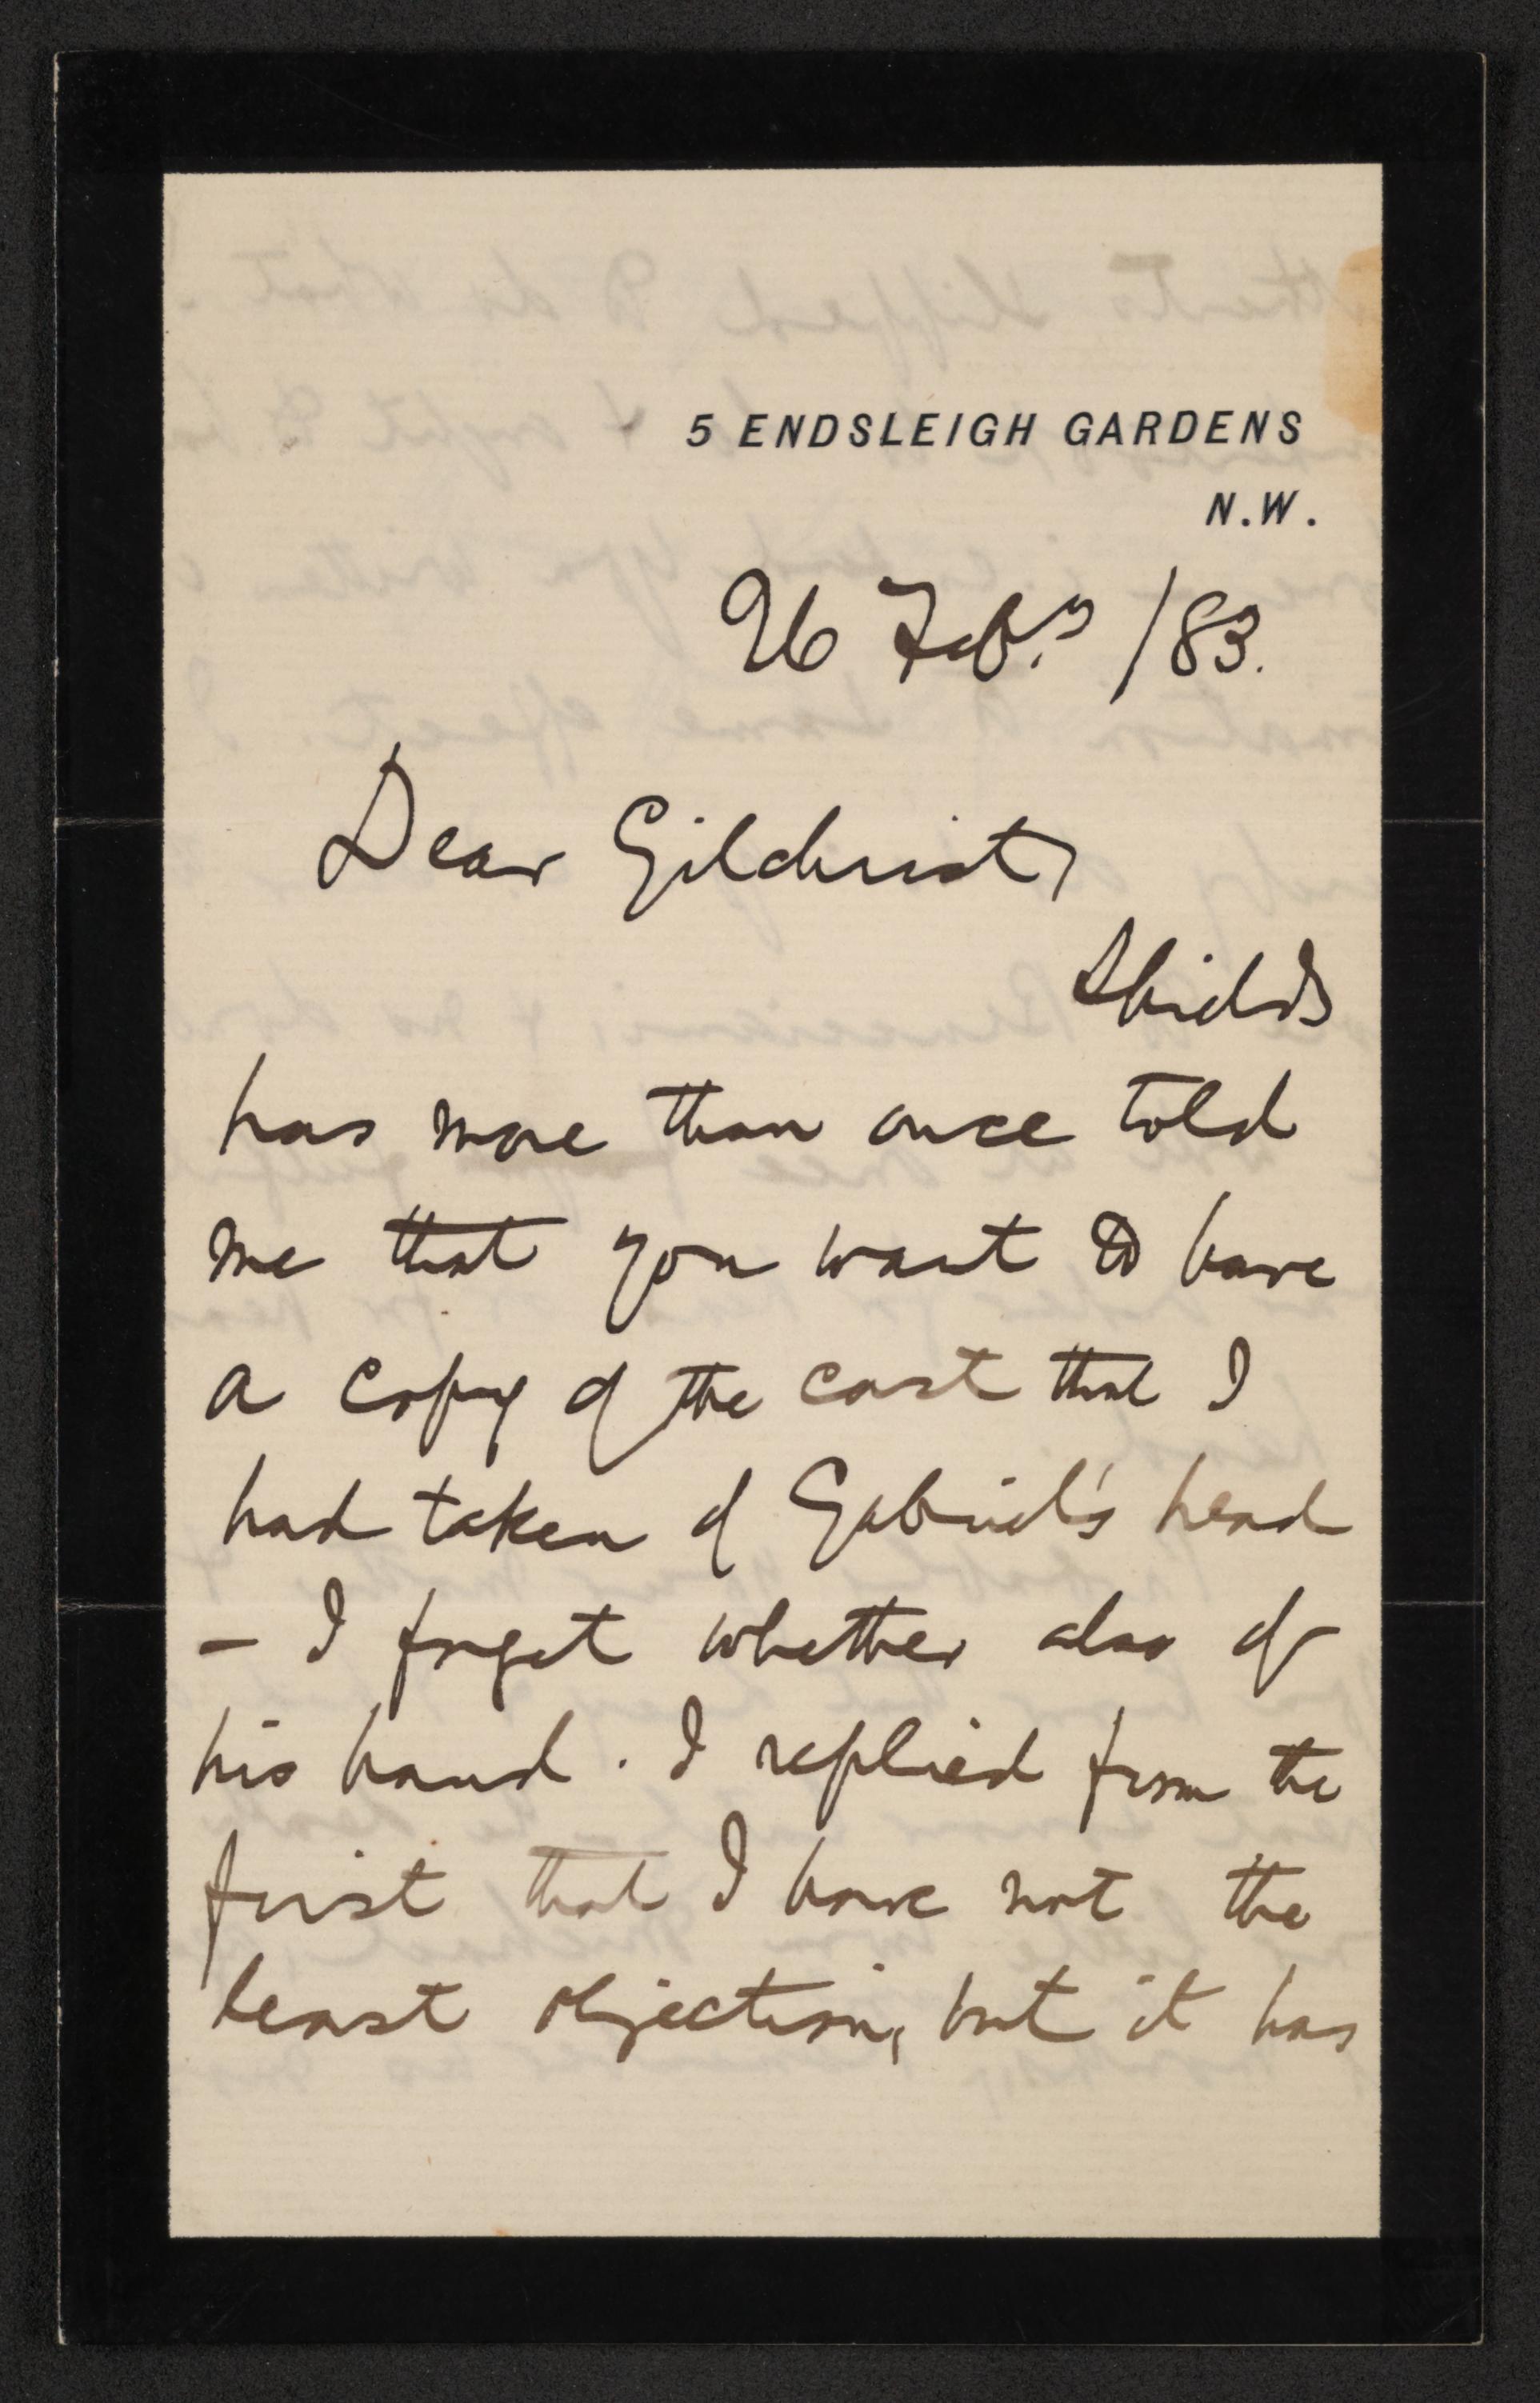 5 ENDSLEIGH GARDENS
N.W.
26 Feb.y /83.
Dear Gilchrist,
Shields
has more than once told
me that you want to have
a copy of the cast that I
had taken of Gabriel's head
— I forget whether also of
his hand. I replied from the
first that I have not the
least objection, but it has